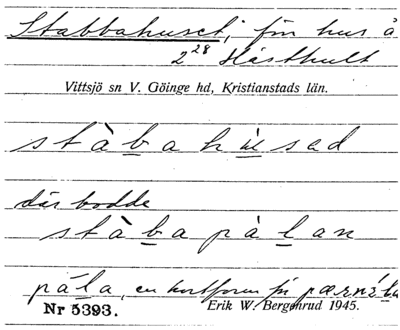 Stabbahuset; förr hus å
2²⁸ Hästhult
Vittsjö sn V. Göinge hd, Kristianstads län.
stàbahu̇sad
där bodde
stàbapàlan
pala, en kortform på
Nr 5393. Erik W. Bergenrud 1945.